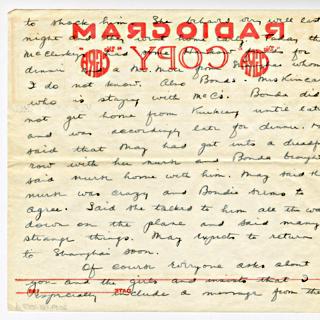 to shock him. She behaved very well last
night
RADIOGRAM
McCluskey had some
COPY
dinner a Mr. whom
I do not know. Also Bonds. Mrs Kincaid
who is staying with McCs. Bonda did
not get home from Kuikiang until late
and was accordingly late for dinner.
said that May had got into a dreadful
row with her nurse and Bonda brought
said nurse home with him. May said the
nurse was crazy and Bonda seems to
agree. Said she talked to him all the way
down on the plane and said many
strange things. May expects to return
to Shanghai soon.
Of course everyone asks about
you and the girls and insists that I
especially include a message from them
DATE